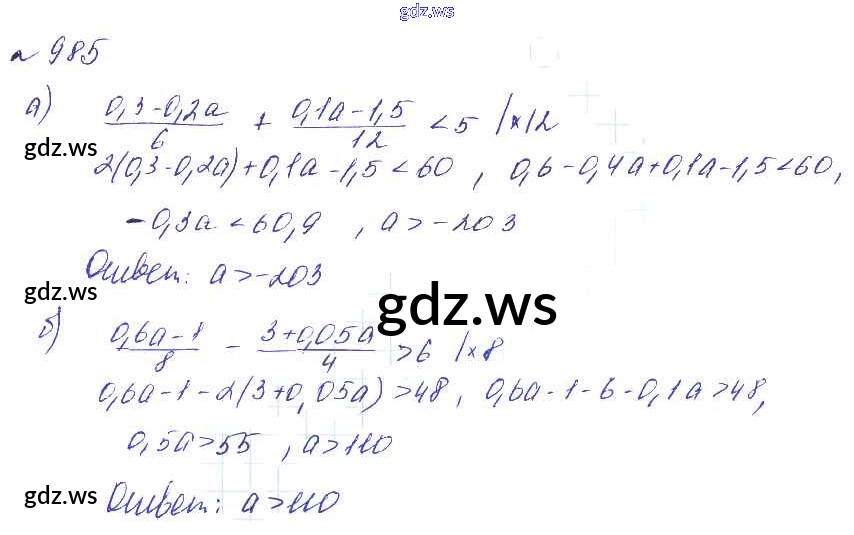 gdz.ws
№ 985
а) (0,3-0,2a)/6 + (0,1a-1,5)/12 < 5 |×12
gdz.ws
2(0,3-0,2a)+0,1a-1,5<60, 0,6-0,4a+0,1a-1,5<60,
-0,3a<60,9, a>-203
Ответ: a>-203
gdz.ws
gdz.ws
б) (0,6a-1)/8 - (3+0,05a)/4 > 6 |×8
0,6a-1-2(3+0,05a)>48, 0,6a-1-6-0,1a>48,
0,5a>55, a>110
gdz.ws
Ответ: a>110